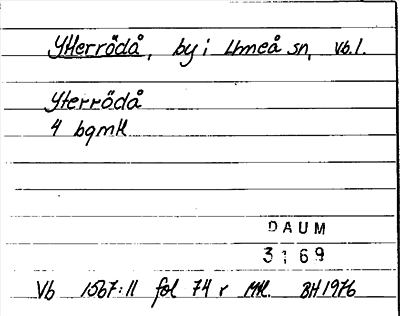 Ytterrödå, by i Umeå sn, Vb. l.
Yterrödå
4 bgmtl
DAUM
3169
Vb 1567:11 fol 74 r Mtl. BH 1976